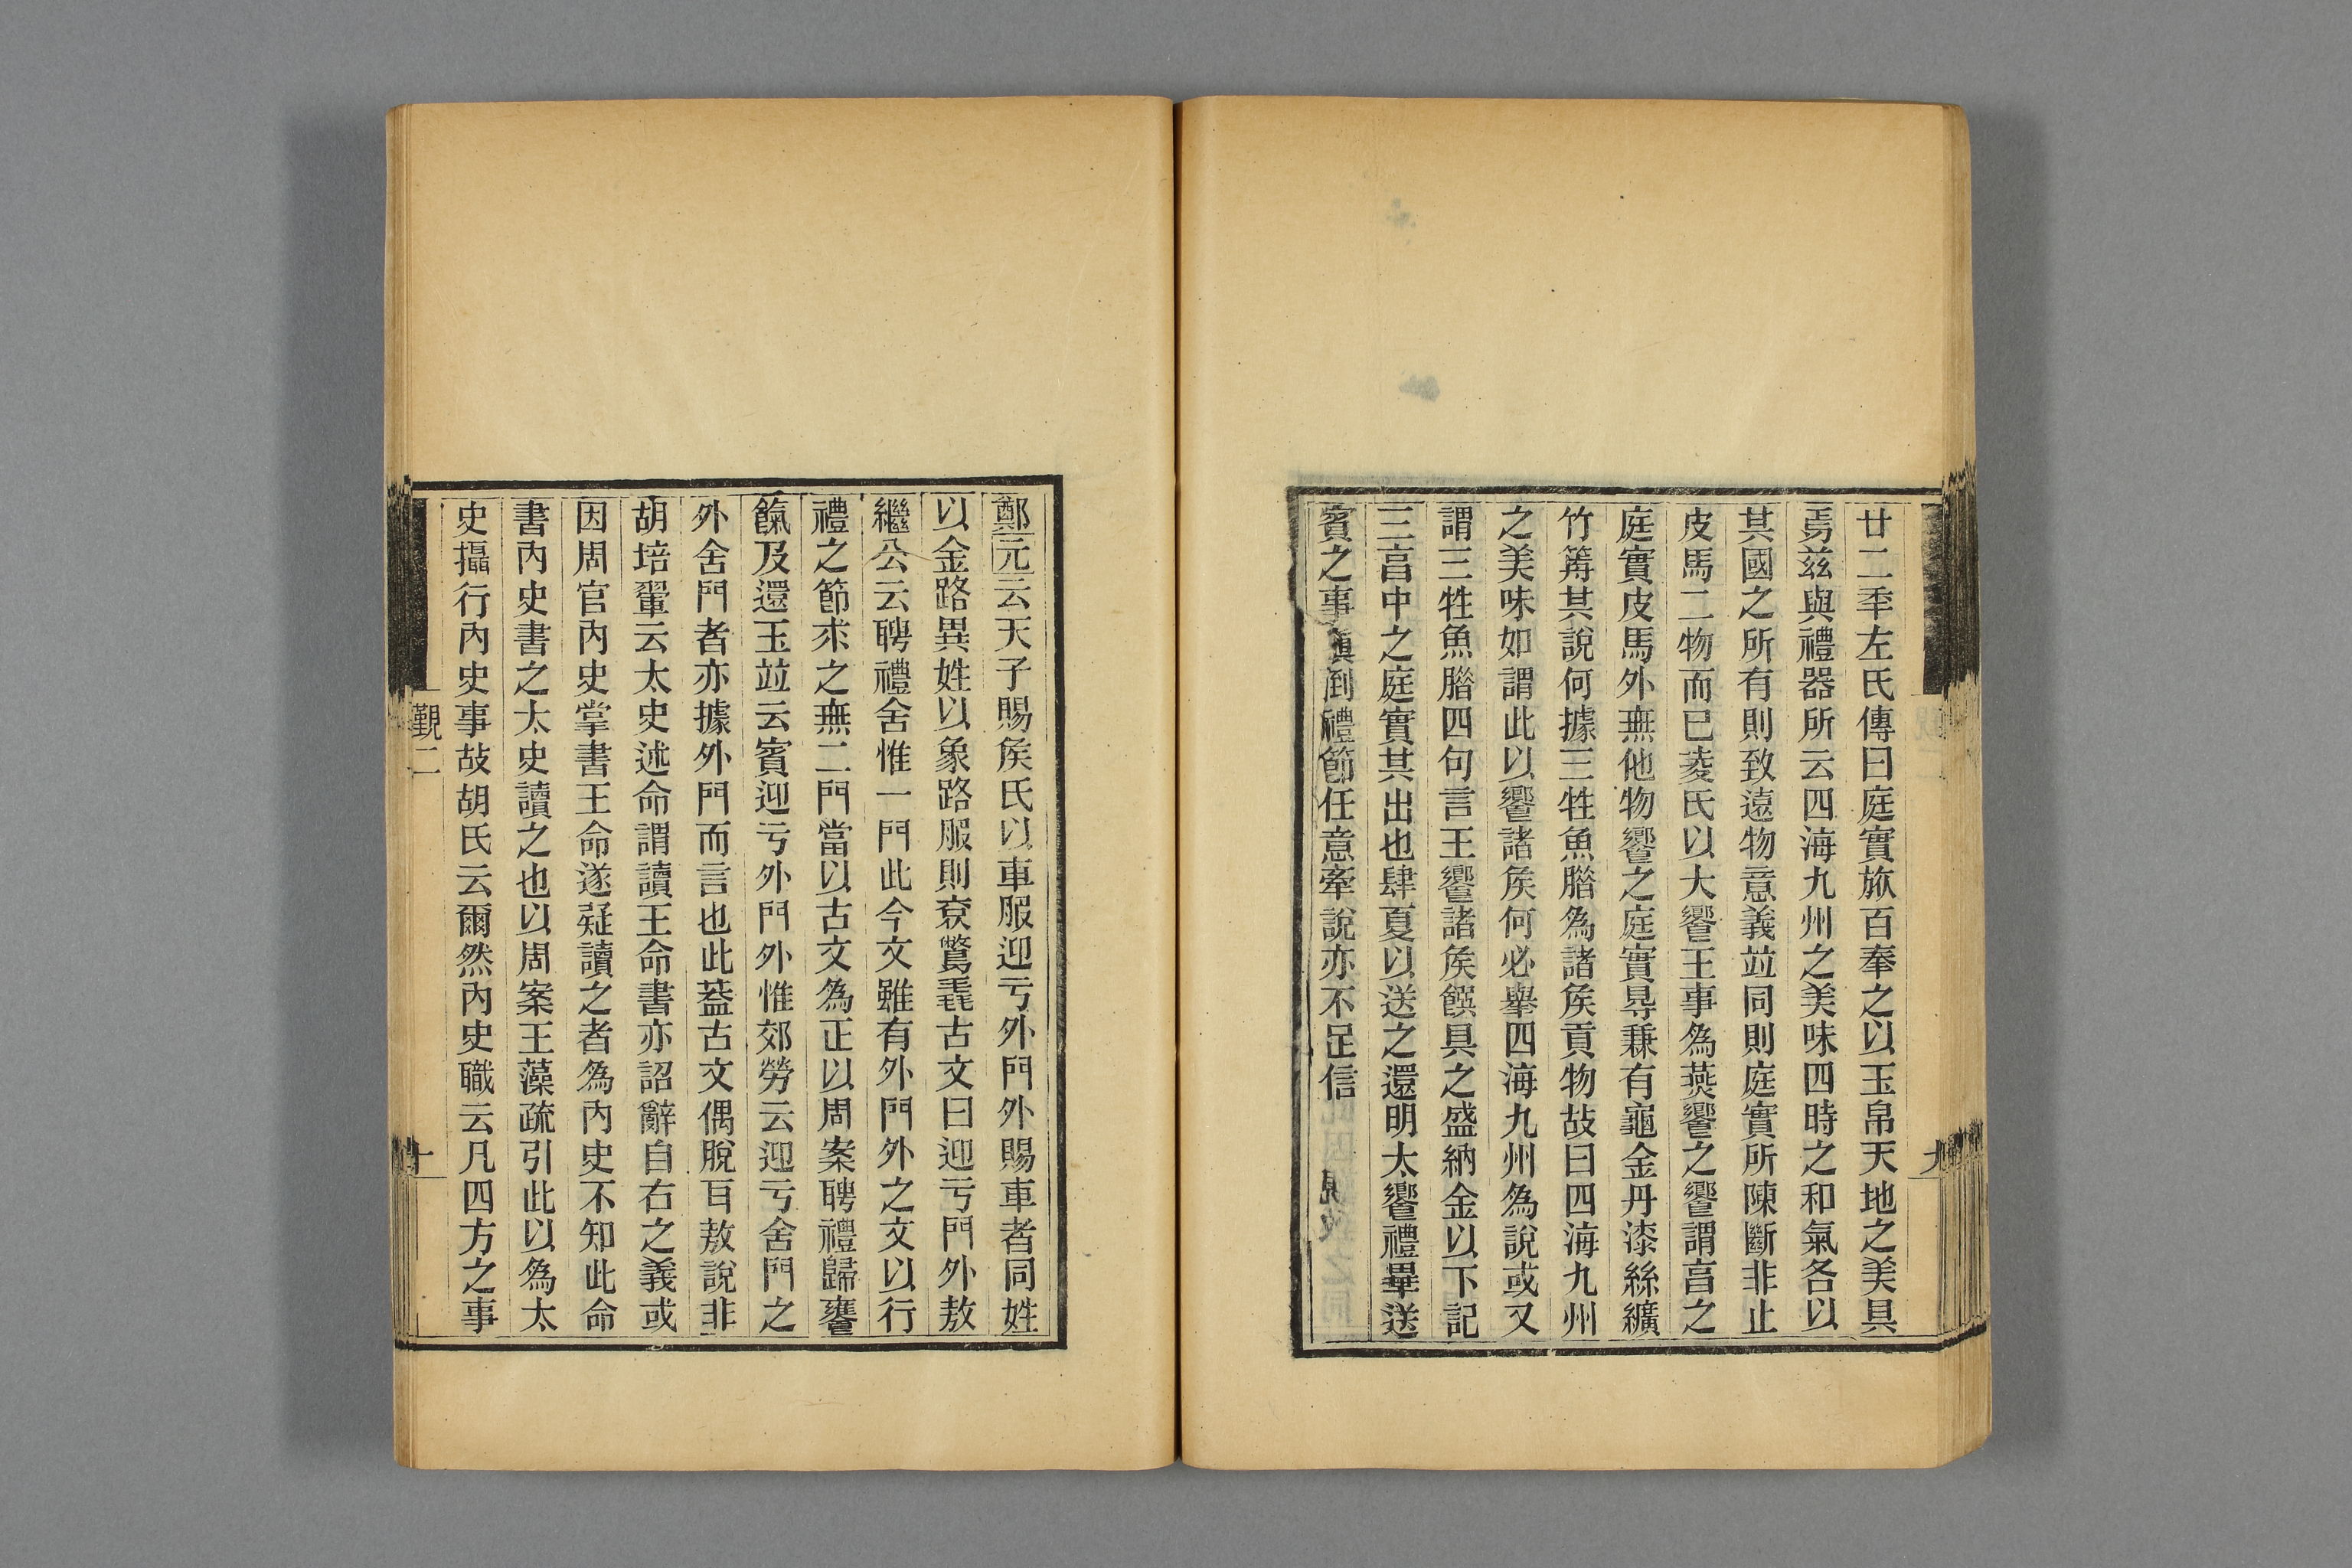 廿二秊左氏傳曰庭實旅百奉之以玉帛天地之美具
焉茲與禮器所云四海九州之美味四時之和氣各以
其國之所有則致遠物意義竝同則庭實所陳斷非止
皮馬二物而已菱氏以大饗王事爲燕饗之饗謂亯之
庭實皮馬外無他物饗之庭實㝵兼有龜金丹漆絲纊
竹箭其說何據三牲魚腊爲諸矦貢物故曰四海九州
之美味如謂此以饗諸矦何必舉四海九州爲說或又
謂三牲魚腊四句言王饗諸矦饌具之盛納金以下記
三亯中之庭實其出也肆夏以送之還明太饗禮畢送
賓之事顚倒禮節任意牽說亦不足信
九
鄭元云天子賜矦氏以車服迎亏外門外賜車者同姓
以金路異姓以象路服則袞鷩毳古文曰迎亏門外敖
繼公云聘禮舍惟一門此今文雖有外門外之文以行
禮之節求之無二門當以古文爲正以周案聘禮歸饔
餼及還玉竝云賓迎亏外門外惟郊勞云迎亏舍門之
外舍門者亦據外門而言也此葢古文偶脫百敖說非
胡培翬云太史述命謂讀王命書亦詔辭自右之義或
因周官內史掌書王命遂疑讀之者爲內史不知此命
書內史書之太史讀之也以周案王藻疏引此以爲太
史攝行內史事故胡氏云爾然內史職云凡四方之事
覲二
十